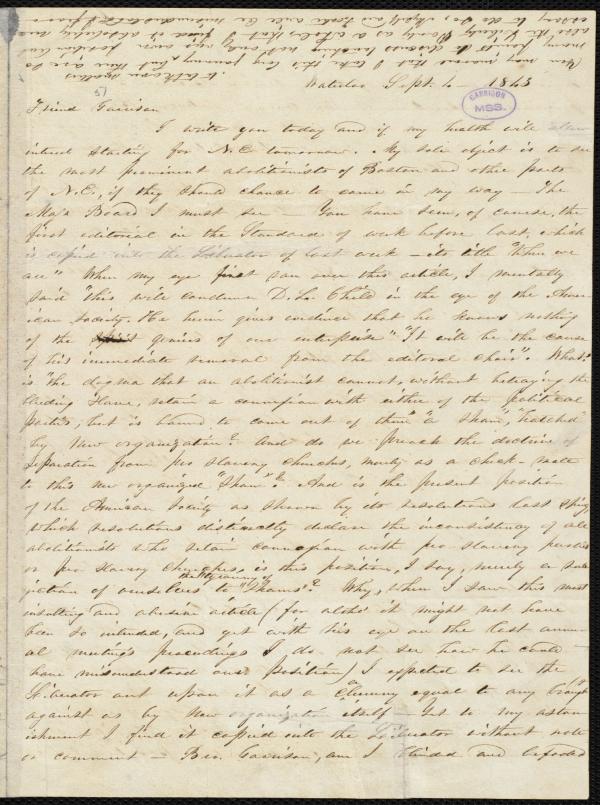 You may suppose that I take this long journey, but there are so
many points to discuss touching not only our own position but
also the Liberty Party as a whole, that I find it absolutely nec-
essary to do so,
Waterloo Sept. 4 - 1843
5)
GARRISON
MSS.
Friend Garrison
I write you today and if my health will allow
intend starting for N.E. tomorrow. My sole object is to see
the most prominent abolitionists of Boston and other parts
of N.E., if they should chance to come in my way - The
Mass Board I must see - You have seen, of course, the
first editorial in the Standard of week before last, which
is copied into the Liberator of last week - its title "Where we
are" When my eye first ran over this article, I mentally
said "this will condemn D. L. Child in the eye of the Amer-
ican society. He herein gives evidence that he knows nothing
of the genius of our enterprise" "It will be the cause
of his immediate removal from the editoral chair". What!
is "the dogma that an abolitionist cannot, without betraying the
bleeding slave, retain a connexion with either of the political
parties, but is bound to come out of them" "a sham", "hatched"
by New organization? And do we preach the doctrine of
separation from pro slavery churches, merely as a check-mate
to this new organized "sham"? And is the present position
of the American Society as shown by its resolutions last spring
which resolutions distinctly declare the inconsistency of all
abolitionists who retain connexion with pro slavery parties
or pro slavery churches, is this position, I say, merely a sub-
jection of ourselves to "the tyranny of shams"? Why, when I saw this most
insulting and abusive article (for altho' it might not have
been so intended, and yet with his eye on the last annu-
al meeting's proceedings I do not see how he could
have misunderstood our position) I expected to see the
Liberator out upon it as a calumny equal to any brought
against us by New organization itself - Yet to my aston-
ishment I find it copied into the Liberator without note
or comment - Bro. Garrison, am I blinded and befooled